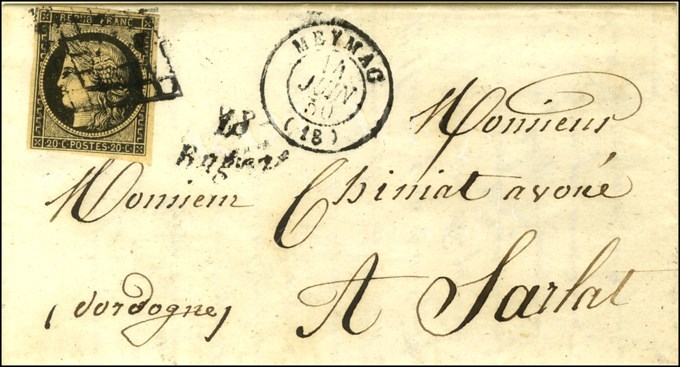 REPUB. FRANC.
20 C. POSTES 20 C.
MEYMAC
14
JUIN
50
(18)
18
Bugeat
Monsieur
Monsieur Chiniat avoué
A Sarlat
(dordogne)